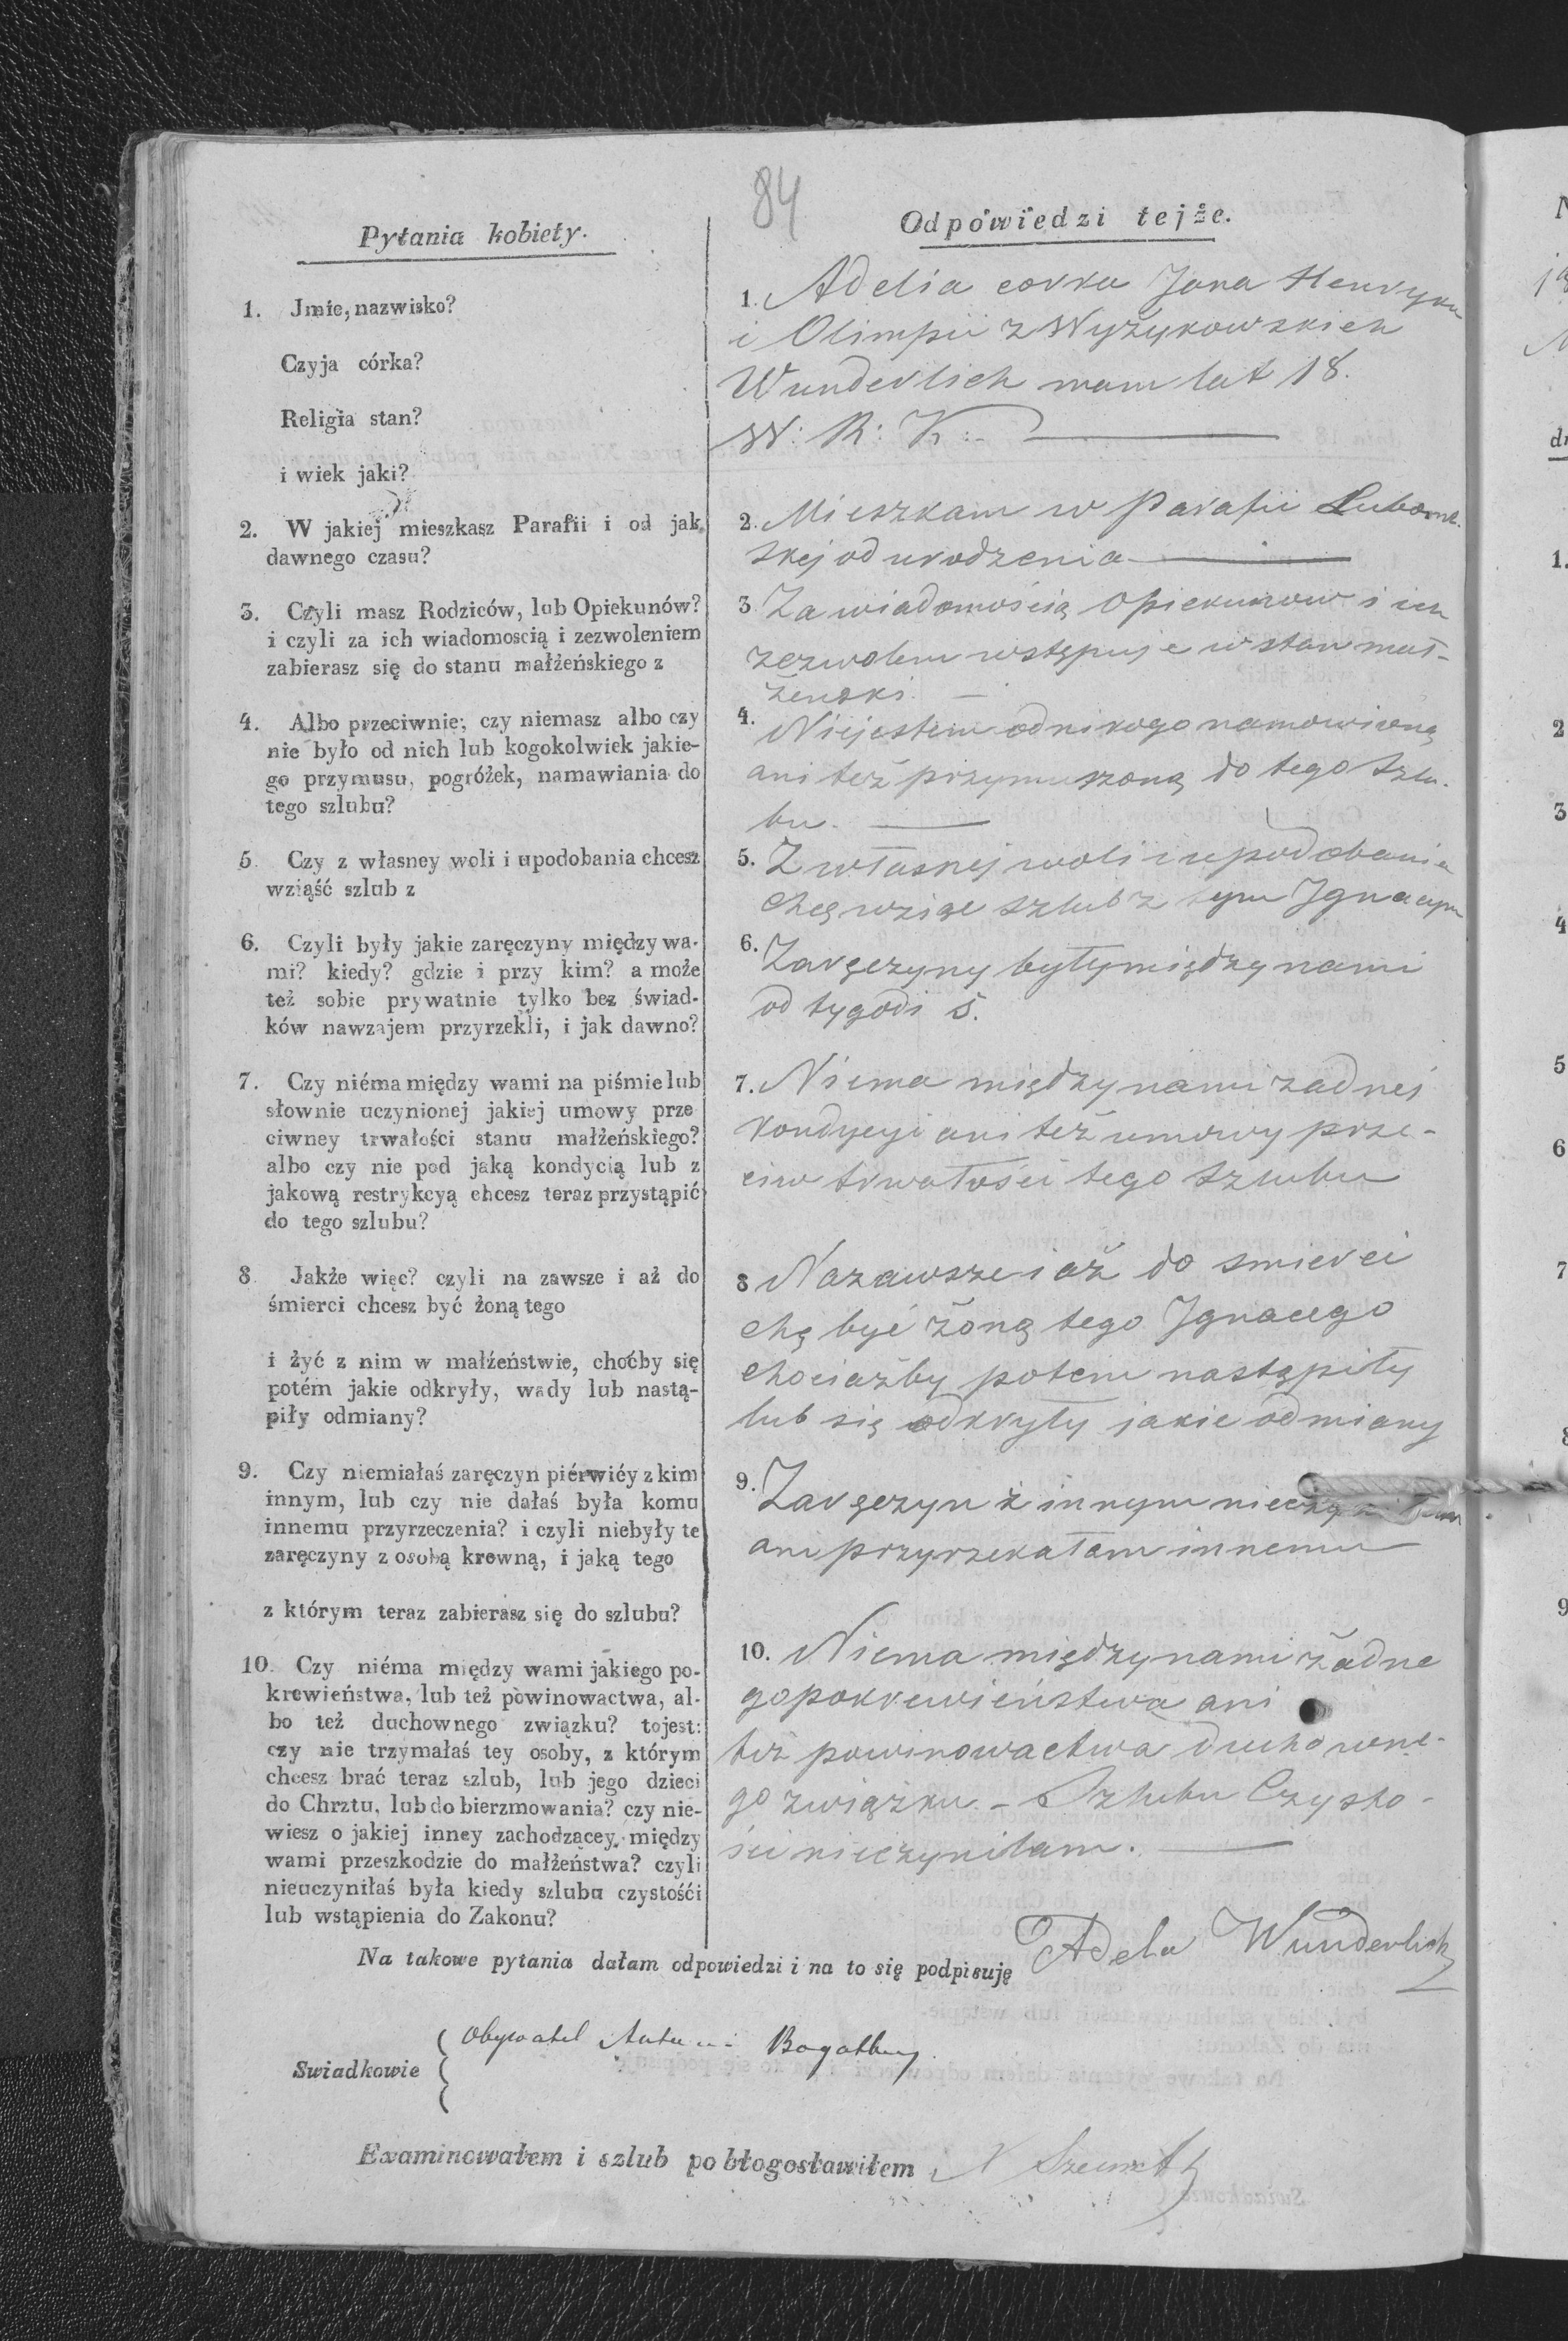 84
Pytania kobiety.
1. Jmie, nazwisko?
Czyja córka?
Religia stan?
i wiek jaki?
2. W jakiej mieszkasz Parafii i od jak
dawnego czasu?
3. Czyli masz Rodziców, lub Opiekunów?
i czyli za ich wiadomoscią i zezwoleniem
zabierasz się do stanu małżeńskiego z
4. Albo przeciwnie; czy niemasz albo czy
nie było od nich lub kogokolwiek jakie-
go przymusu, pogróżek, namawiania do
tego szlubu?
5. Czy z własney woli i upodobania chcesz
wziąść szlub z
6. Czyli były jakie zaręczyny między wa-
mi? kiedy? gdzie i przy kim? a może
też sobie prywatnie tylko bez świad-
ków nawzajem przyrzekli, i jak dawno?
7. Czy niéma między wami na piśmie lub
słownie uczynionej jakiej umowy prze
ciwney trwałości stanu małżeńskiego?
albo czy nie pod jaką kondycią lub z
jakową restrykcyą chcesz teraz przystąpić
do tego szlubu?
8 Jakże więc? czyli na zawsze i aż do
śmierci chcesz być żoną tego
i żyć z nim w małżeństwie, choćby się
potém jakie odkryły, wady lub nastą-
piły odmiany?
9. Czy niemiałaś zaręczyn piérwiéy z kim
innym, lub czy nie dałaś była komu
innemu przyrzeczenia? i czyli niebyły te
zaręczyny z osobą krewną, i jaką tego
z którym teraz zabierasz się do szlubu?
10. Czy niéma między wami jakiego po-
krewieństwa, lub też powinowactwa, al-
bo też duchownego związku? tojest:
czy nie trzymałaś tey osoby, z którym
chcesz brać teraz szlub, lub jego dzieci
do Chrztu, lub do bierzmowania? czy nie-
wiesz o jakiej inney zachodzącey między
wami przeszkodzie do małżeństwa? czyli
nieuczyniłaś była kiedy szlubu czystośći
lub wstąpienia do Zakonu?
Odpowiedzi tejże.
1. Adelia corka Jana Henryka
i Olimpii z Wyżykowskich
Wunderlich mam lat 18.
W: R: K:
2. Mieszkam w Parafii Luboml-
skej od urodzenia
3 Za wiadomością opiekunow i ich
zezwolem wstępuje w stan mał-
żenski.
4. Niejestem od nikogo namowioną
ani też przymuszoną do tego szlu-
bu.
5. Z własnej woli i upodobania
chcę wziąć szlub z tym Ignacym
6. Zaręczyny były między nami
od tygodi 5.
7. Niema między nami żadnej
kondycyi ani też umowy prze-
ciw trwałości tego szlubu
8 Nazawsze i aż do smierci
chę być żoną tego Ignacego
chociażby potem nastąpiły
lub się odkryły jakie odmiany
9. Zaręczyn z innym
ani przyrzekałam innemu
10. Niema między nami żadne
go pokrewieństwa ani
też powinowactwa duchowne-
go związku – Szlubu Czysto-
ści nieczyniłam.
Na takowe pytania dałam odpowiedzi i na to się podpisuję Adela Wunderlich
Swiadkowie Obywatel
Examinowałem i szlub pobłogosławiłem